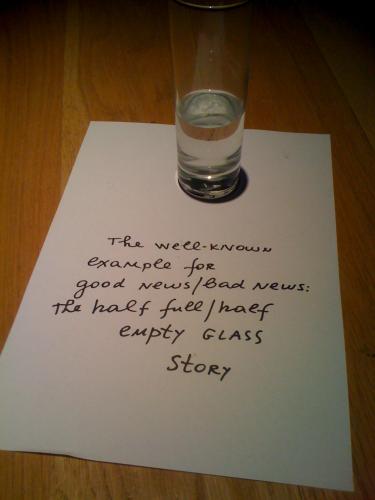 The well-known
example for
good news/bad news:
The half full/half
empty GLASS
Story